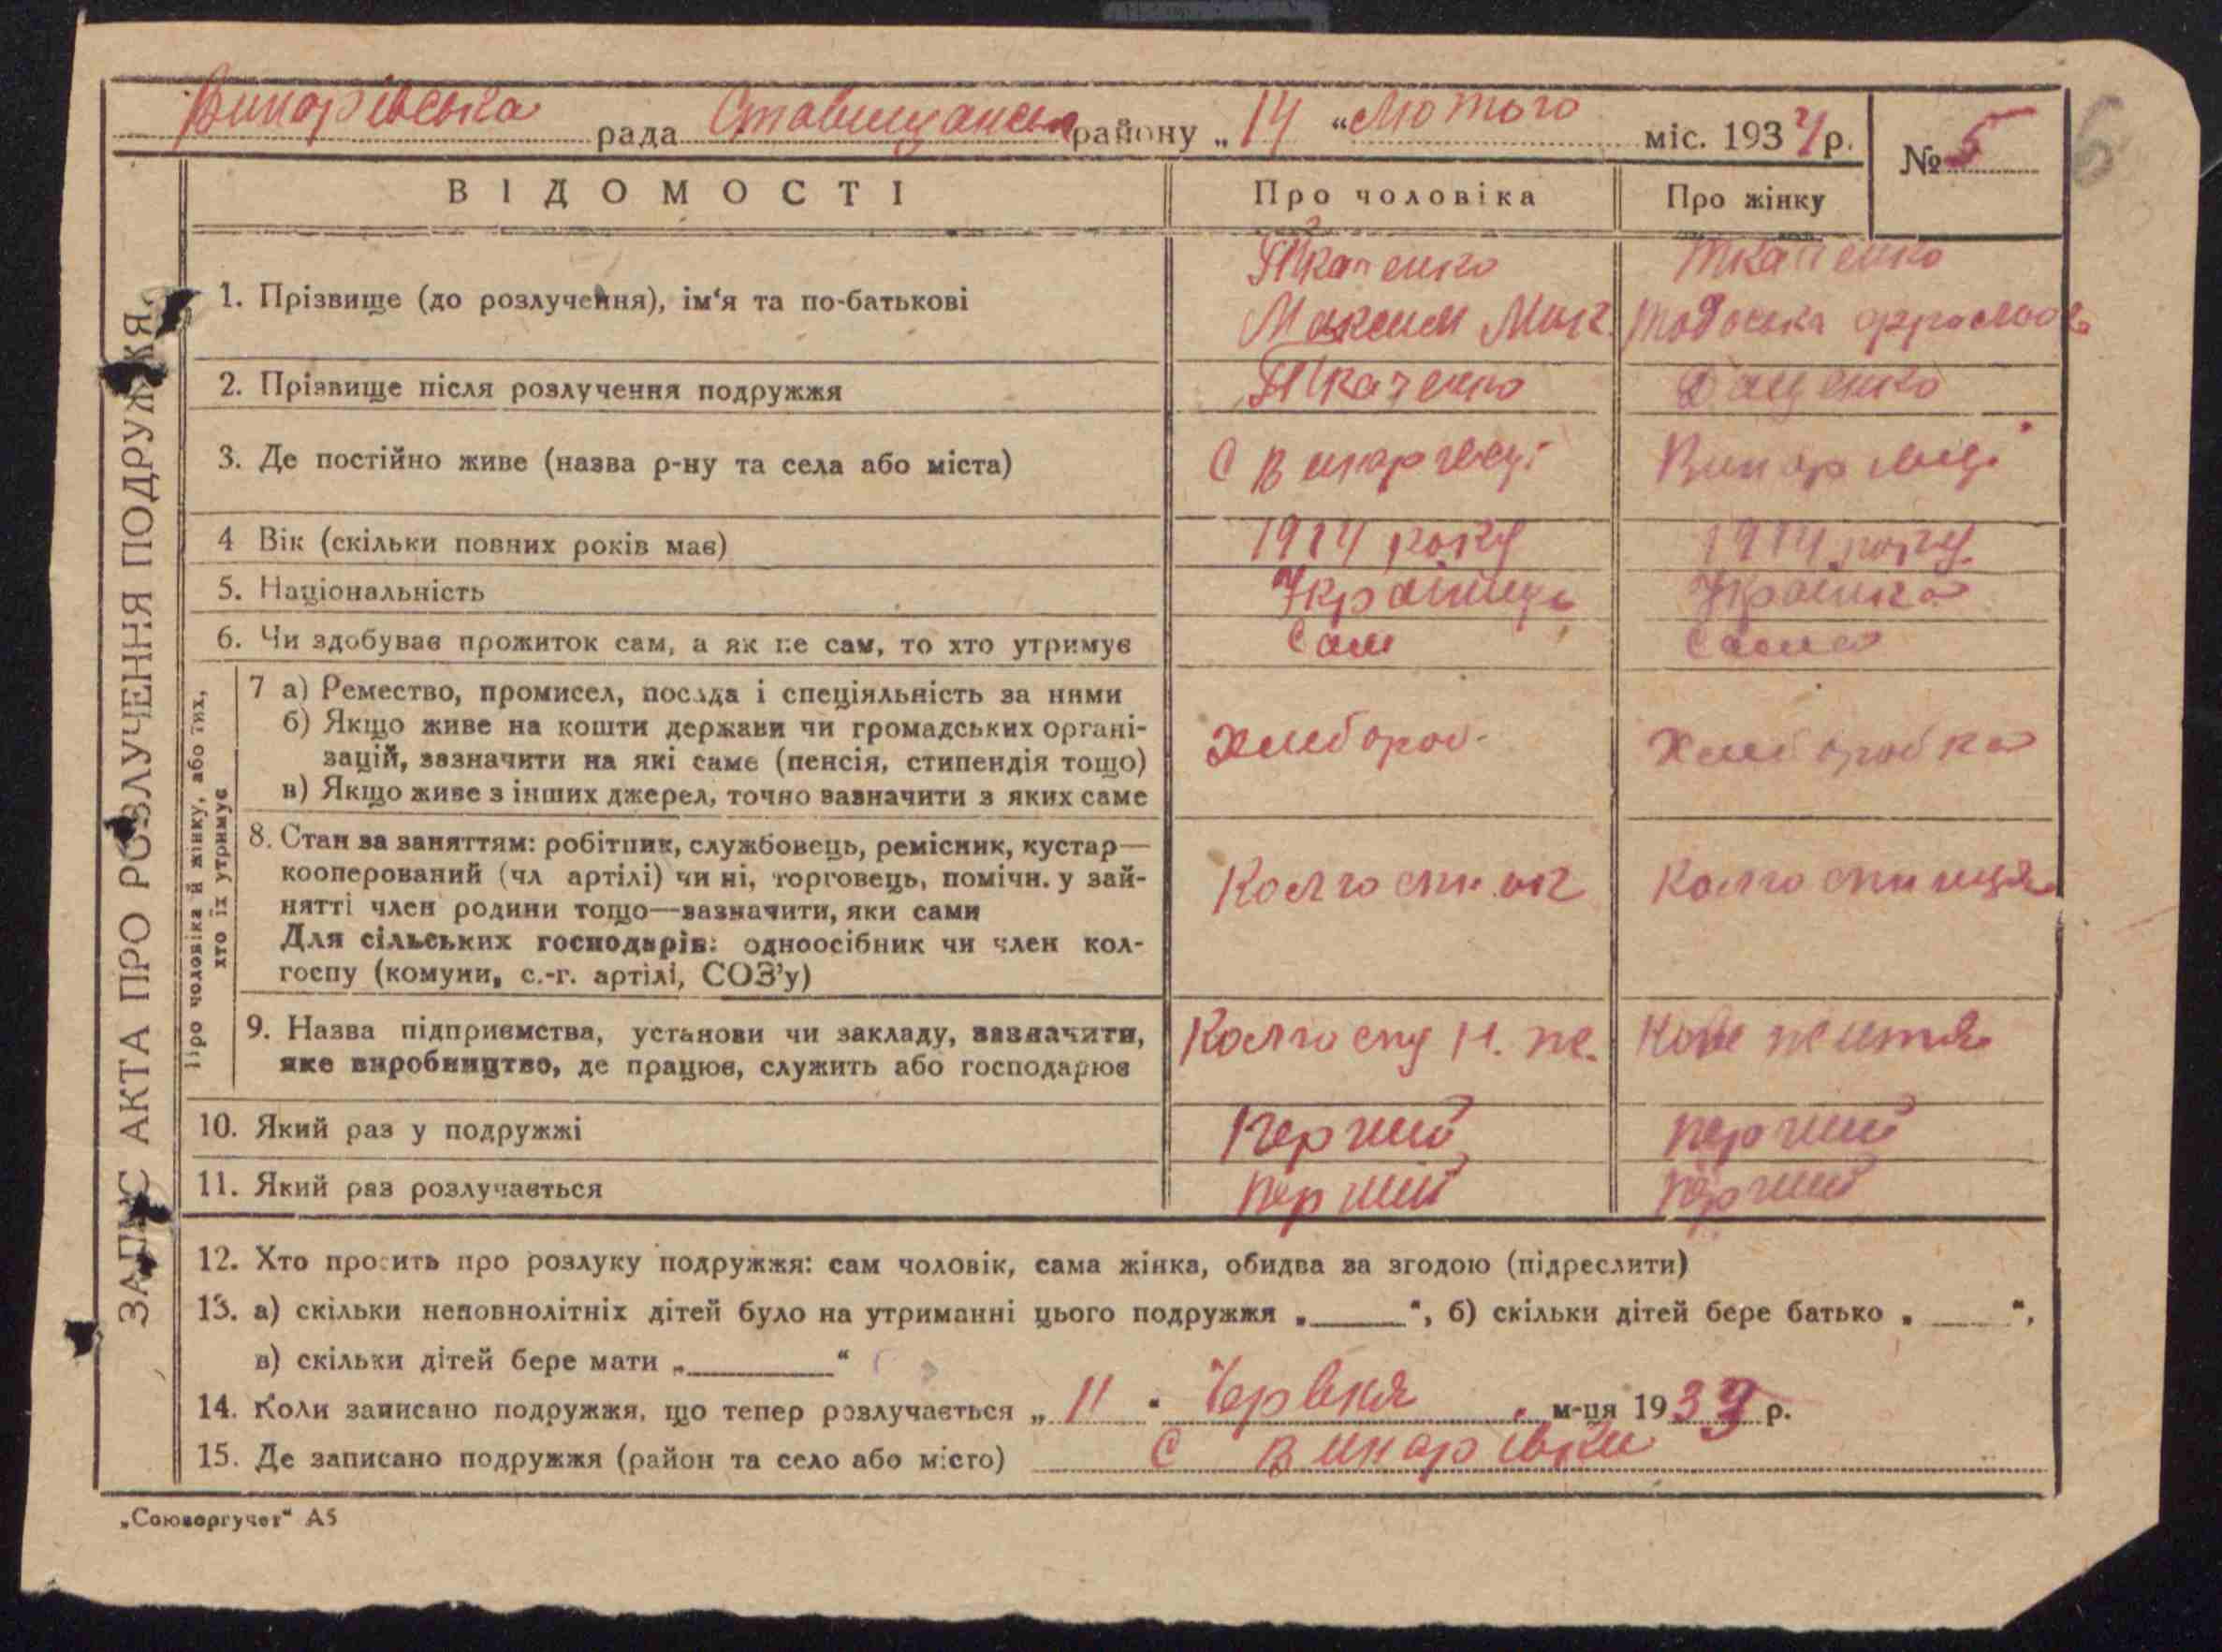 Винарівська рада Ставищанськ району „ 14 “ Лютого міс. 1934 р.
№ 5
ВІДОМОСТІ
Про чоловіка
Про жінку
ЗАПИС АКТА ПРО РОЗЛУЧЕННЯ ПОДРУЖЖЯ
1. Прізвище (до розлучення), ім‘я та по-батькові
Ткаченко
Максим Мик.
Ткаченко
Тодоська
2. Прізвище після розлучення подружжя
Ткаченко
Даценко
3. Де постійно живе (назва р-ну та села або міста)
С Винарівці
Винарівці
4 Вік (скільки повних років має)
1914 року
1914 року
5. Національність
Українець
Українка
6. Чи здобуває прожиток сам, а як не сам, то хто утримує
Сам
Сама
Про чоловіка й жінку, або тих,
хто їх утримує
7 а) Ремество, промисел, посада і спеціяльність за ними
б) Якщо живе на кошти держави чи громадських органі-
зацій, зазначити на які саме (пенсія, стипендія тощо)
в) Якщо живе з інших джерел, точно зазначити з яких саме
Хлібороб
Хліборобка
8. Стан за заняттям: робітник, службовець, ремісник, кустар—
кооперований (чл артілі) чи ні, торговець, помічн. у зай-
нятті член родини тощо—зазначити, яки сами
Для сільських господарів: одноосібник чи член кол-
госпу (комуни, с.-г. артілі, СОЗ’у)
Колгоспник
Колгоспниця
9. Назва підприємства, установи чи закладу, зазначити,
яке виробництво, де працює, служить або господарює
Колгоспу Н. ж.
Нове життя
10. Який раз у подружжі
Перший
перший
11. Який раз розлучається
перший
перший
12. Хто просить про розлуку подружжя: сам чоловік, сама жінка, обидва за згодою (підреслити)
13. а) скільки неповнолітніх дітей було на утриманні цього подружжя „______“, б) скільки дітей бере батько „ _____“,
в) скільки дітей бере мати „_________“
14. Коли записано подружжя, що тепер розлучається „ 11 “ Червня м-ця 193 р.
15. Де записано подружжя (район та село або місто) С Винарівки
„Союзоргучет“ А5